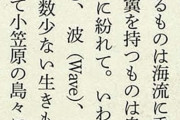 るものは海流に乗
翼を持つものは自
に紛れて。いわ
波（Wave）、
数少ない生きも
て小笠原の島々に